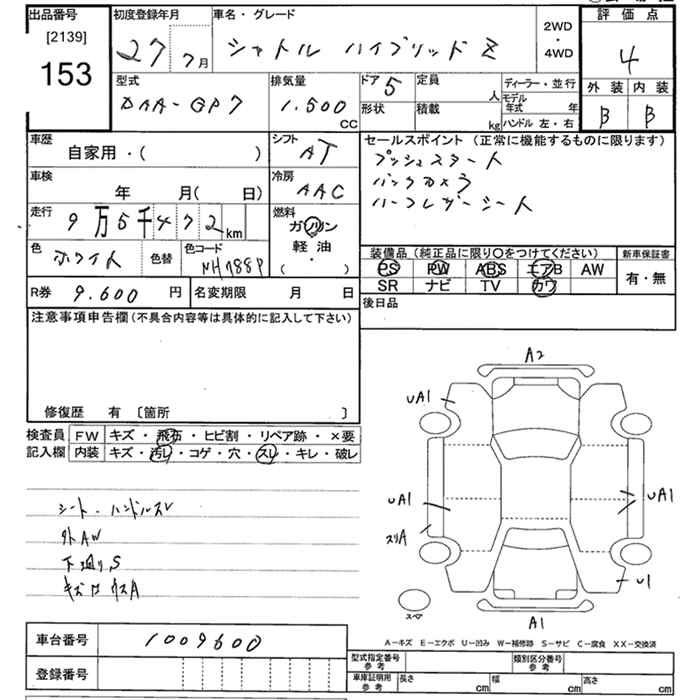 出品番号
[2139]
153
初度登録年月
27 7月
車名・グレード
シャトル ハイブリッド Z
2WD
・
4WD
評価点
4
外装 内装
B B
型式
DAA-GP7
排気量
1.500
CC
ドア 5
形状
定員
人
積載
kg
ディーラー・並行
モデル年式 年
ハンドル 左・右
車歴
自家用・( )
シフト
AT
車検
年 月( 日)
冷房
AAC
走行
9万5千472km
燃料
ガソリン
軽油
・
( )
色
ホワイト
色替
色コード
NH788P
セールスポイント (正常に機能するものに限ります)
プッシュスタート
バックカメラ
ハーフレザーシート
装備品 (純正品に限り○をつけてください)
PS PW ABS エアB AW
SR ナビ TV カワ
新車保証書
有・無
R券 9.600 円
名変期限 月 日
後日品
注意事項申告欄 (不具合内容等は具体的に記入して下さい)
修復歴 有 〔箇所 〕
検査員
記入欄
FW キズ・飛石・ヒビ割・リペア跡・×要
内装 キズ・汚レ・コゲ・穴・スレ・キレ・破レ
シート・ハンドルスレ
外AW
下廻り,S
A2
UA1
UA1
スリA
UA1
U1
スペア
A1
A−キズ E−エクボ U−凹み W−補修跡 S−サビ C−腐食 XX−交換済
車台番号 1009600
登録番号
型式指定番号
参考
類別区分番号
参考
車庫証明用
参考
長さ cm 幅 cm 高さ cm